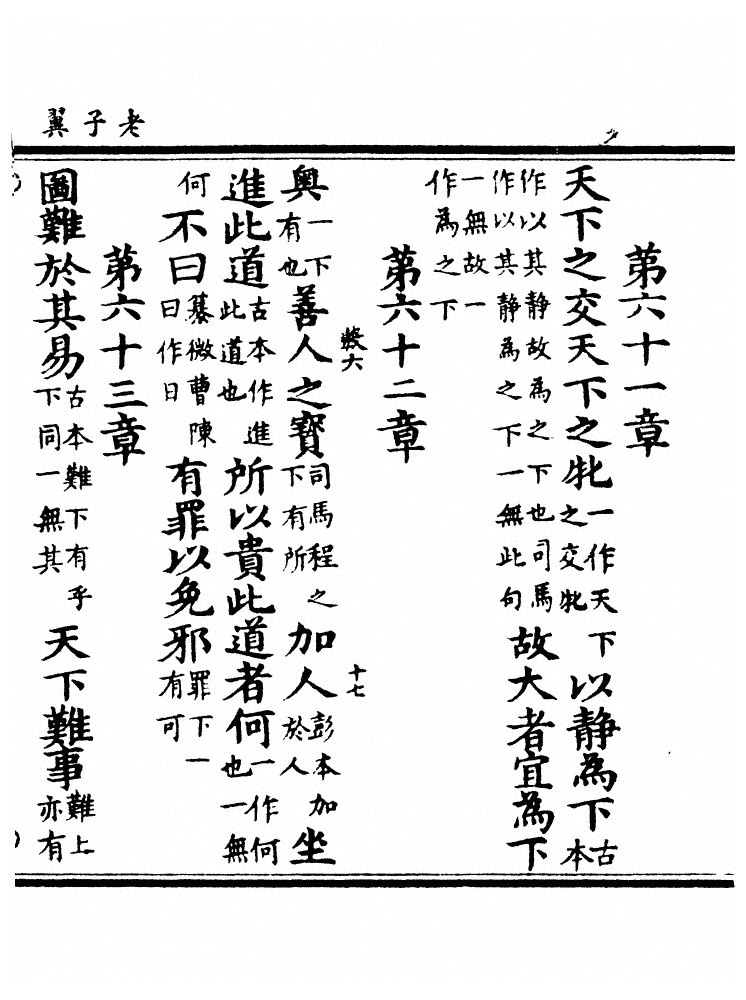 老子翼
第六十一章
天下之交天下之牝一作天下之交牝以静為下古本
作以其静故為之下也司馬作以其静為之下一無此句故大者宜為下
一無故一作為之下
第六十二章
奥一下有也善人之寳司馬程之下有所加人彭本加於人坐
六
十七
進此道古本作進此道也所以貴此道者何一作何也一無
何不曰纂微曹陳曰作日有罪以免邪罪下一有可
第六十三章
圖難於其易古本難下有乎下同一無其天下難事難上亦有